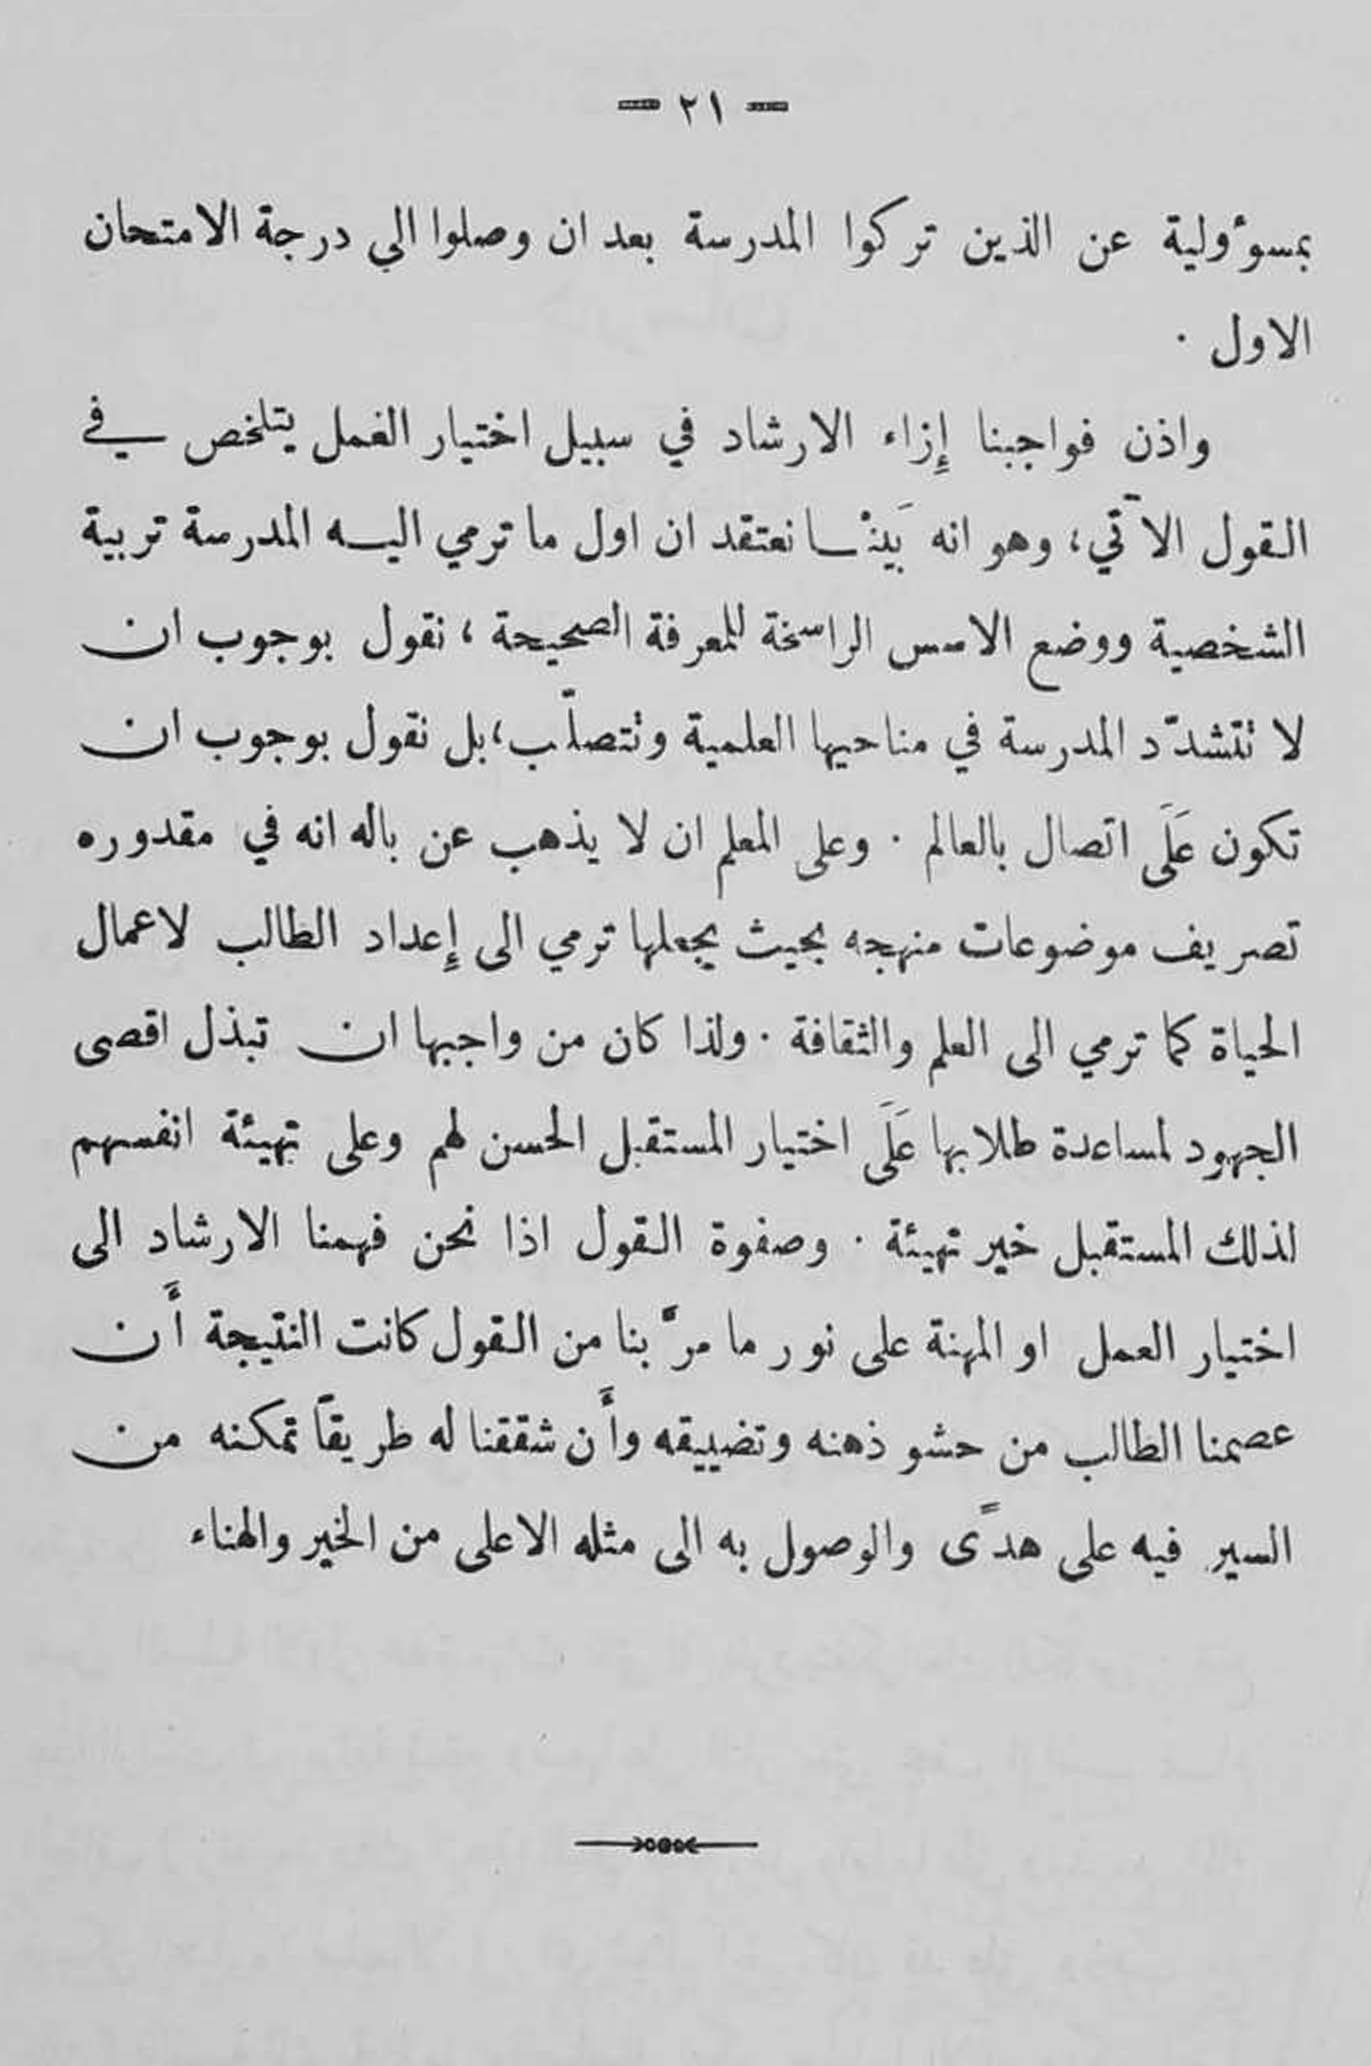 — ٢١ —
بمسوٴولية عن الذين تركوا المدرسة بعد ان وصلوا الي درجة الامتحان
الاول .
واذن فواجبنا إِزاء الارشاد في سبيل اختيار الغمل يتلخص في
القول الآتي، وهو انه بَيْنا نعتقد ان اول ما ترمي اليه المدرسة تربية
الشخصية ووضع الاسس الراسخة للمعرفة الصحيحة ، نقول بوجوب ان
لا تتشدّد المدرسة في مناحيها العلمية وتتصلّب، بل نقول بوجوب ان
تكون عَلَى اتصال بالعالم . وعلى المعلم ان لا يذهب عن باله انه في مقدوره
تصريف موضوعات منهجه بحيث يجعلها ترمي الى إِعداد الطالب لاعمال
الحياة كما ترمي الى العلم والثقافة . ولذا كان من واجبها ان تبذل اقصى
الجهود لمساعدة طلابها عَلَى اختيار المستقبل الحسن لهم وعلى تهيئة انفسهم
لذلك المستقبل خير تهيئة . وصفوة القول اذا نحن فهمنا الارشاد الى
اختيار العمل او المهنة على نور ما مرَّ بنا من القول كانت النتيجة أَن
عصمنا الطالب من حشو ذهنه وتضييقه وأَن شققنا له طريقاً تمكنه من
السير فيه على هدًى والوصول به الى مثله الاعلى من الخير والهناء